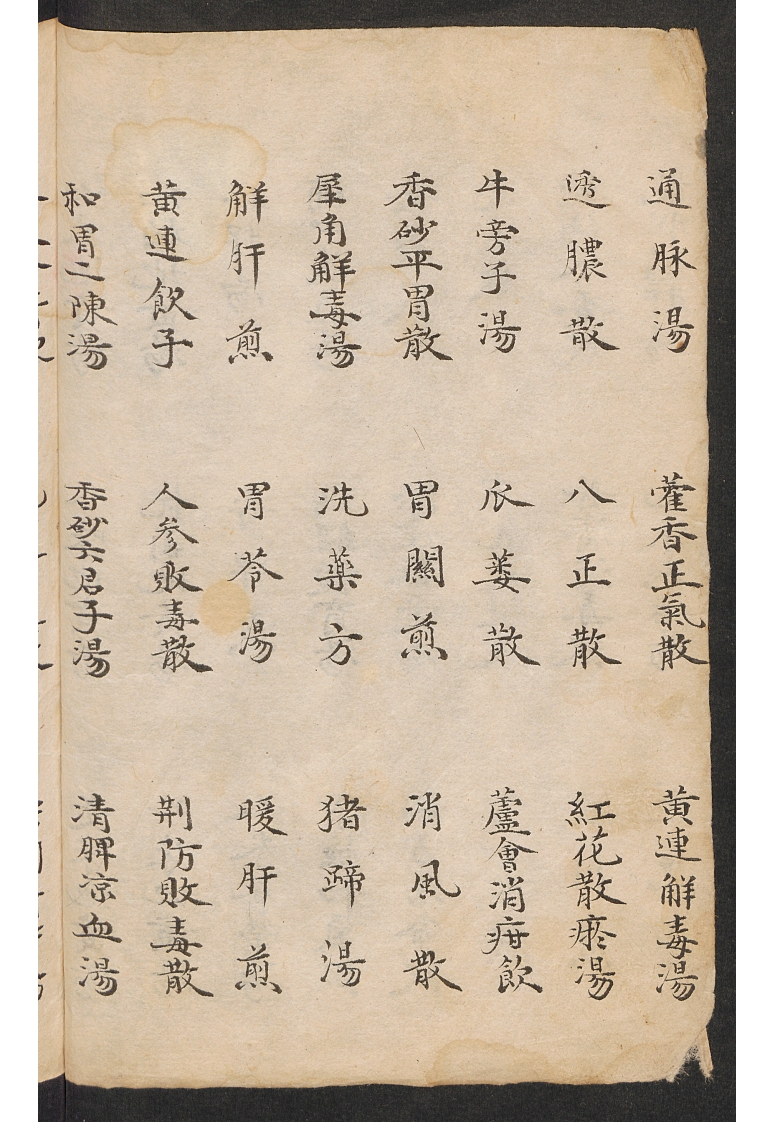 通脉湯 藿香正氣散 黄連解毒湯
透膿散 八正散 紅花散瘀湯
牛旁子湯 瓜蔞散 蘆會消疳飲
香砂平胃散 胃關煎 消風散
犀角解毒湯 洗藥方 猪蹄湯
解肝煎 胃苓湯 暖肝煎
黄連飲子 人參敗毒散 荆防敗毒散
和胃二陳湯 香砂六君子湯 清脾凉血湯